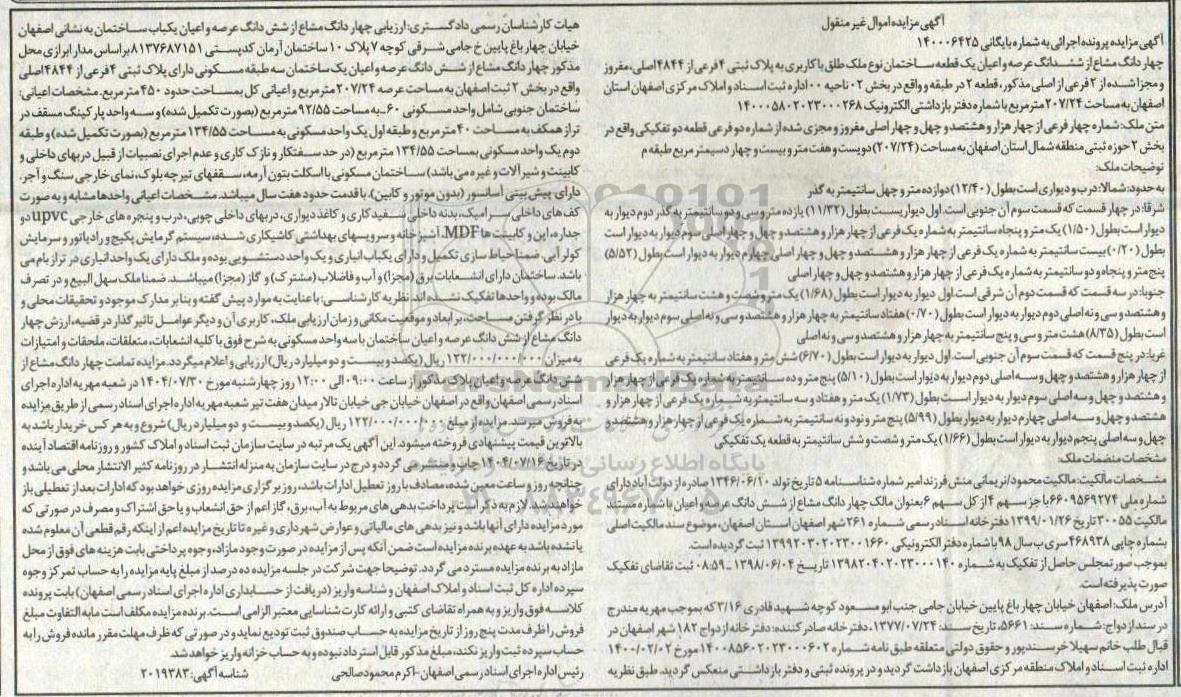 آگهی مزایده اموال غیر منقول
آگهی مزایده پرونده اجرائی به شماره بایگانی ۱۴۰۰۰۶۴۲۵
چهار دانگ مشاع از ششدانگ عرصه و اعیان یک قطعه ساختمان نوع ملک طلق با کاربری به پلاک ثبتی ۴ فرعی از ۴۸۴۴ اصلی، مفروز
و مجزا شده از ۲ فرعی از اصلی مذکور، قطعه ۲ در طبقه و واقع در بخش ۰۲ ناحیه ۰۰ اداره ثبت اسناد و املاک مرکزی اصفهان استان
اصفهان به مساحت ۲۰۷/۲۴ متر مربع با شماره دفتر بازداشتی الکترونیک ۱۴۰۰۰۵۸۰۲۰۲۳۰۰۰۲۶۸
متن ملک: شماره چهار فرعی از چهار هزار و هشتصد و چهل و چهار اصلی مفروز و مجزی شده از شماره دو فرعی قطعه دو تفکیکی واقع در
بخش ۲ حوزه ثبتی منطقه شمال استان اصفهان به مساحت (۲۰۷/۲۴) دویست و هفت متر و بیست و چهار دسیمتر مربع طبقه م
توضیحات ملک:
به حدود: شمالا: درب و دیواری است بطول (۱۲/۴۰) دوازده متر و چهل سانتیمتر به گذر
شرقا: در چهار قسمت که قسمت سوم آن جنوبی است. اول دیواریست بطول (۱۱/۳۲) یازده متر و سی و دو سانتیمتر به گذر دوم دیوار به
دیوار است بطول (۱/۵۰) یک متر و پنجاه سانتیمتر به شماره یک فرعی از چهار هزار و هشتصد و چهل و چهار اصلی سوم دیوار به دیوار است
بطول (۰/۲۰) بیست سانتیمتر به شماره یک فرعی از چهار هزار و هشتصد و چهل و چهار اصلی چهارم دیوار به دیوار است بطول (۵/۵۲)
پنج متر و پنجاه و دو سانتیمتر به شماره یک فرعی از چهار هزار و هشتصد و چهل و چهار اصلی
جنوبا: در سه قسمت که قسمت دوم آن شرقی است اول دیوار به دیوار است بطول (۱/۶۸) یک متر و شصت و هشت سانتیمتر به چهار هزار
و هشتصد و سی و نه اصلی دوم دیوار به دیوار است بطول (۰/۷۰) هفتاد سانتیمتر به چهار هزار و هشتصد و سی و نه اصلی سوم دیوار به دیوار
است بطول (۸/۳۵) هشت متر و سی و پنج سانتیمتر به چهار هزار و هشتصد و سی و نه اصلی
غربا: در پنج قسمت که قسمت سوم آن جنوبی است. اول دیوار به دیوار است بطول (۶/۷۰) شش متر و هفتاد سانتیمتر به شماره یک فرعی
از چهار هزار و هشتصد و چهل و سه اصلی دوم دیوار به دیوار است بطول (۵/۱۰) پنج متر و ده سانتیمتر به شماره یک فرعی از چهار هزار
و هشتصد و چهل و سه اصلی سوم دیوار به دیوار است بطول (۱/۷۳) یک متر و هفتاد و سه سانتیمتر به شماره یک فرعی از چهار هزار و
هشتصد و چهل و سه اصلی چهارم دیوار به دیوار بطول (۵/۹۹) پنج متر و نود و نه سانتیمتر به شماره یک فرعی از چهار هزار و هشتصد و
چهل و سه اصلی پنجم دیوار به دیوار است بطول (۱/۶۶) یک متر و شصت و شش سانتیمتر به قطعه یک تفکیکی
مشخصات منضمات ملک:
مشخصات مالکیت: مالکیت محمود/نریمانی منش فرزند امیر شماره شناسنامه ۵ تاریخ تولد ۱۳۴۶/۰۶/۱۰ صادره از دولت آباد دارای
شماره ملی ۶۶۰۹۵۶۹۲۷۴ با جز سهم ۴ از کل سهم ۶ بعنوان مالک چهار دانگ مشاع از شش دانگ عرصه و اعیان با شماره مستند
مالکیت ۳۰۰۵۵ تاریخ ۱۳۹۹/۰۱/۲۶ دفترخانه اسناد رسمی شماره ۲۶۱ شهر اصفهان استان اصفهان، موضوع سند مالکیت اصلی
بشماره چاپی ۴۶۸۹۳۸ سری ب سال ۹۸ با شماره دفتر الکترونیکی ۱۳۹۹۲۰۳۰۲۰۲۳۰۰۱۶۶۰ ثبت گردیده است.
بموجب صورتمجلس حاصل از تفکیک به شماره ۱۳۹۸۲۰۴۰۲۰۲۳۰۰۰۱۴۰ تاریخ ۱۳۹۸/۰۶/۰۴ - ۰۸:۵۹ ثبت تقاضای تفکیک
صورت پذیرفته است.
آدرس ملک: اصفهان خیابان چهار باغ پایین خیابان جامی جنب ابو مسعود کوچه شهید قادری ۳/۱۶ که بموجب مهریه مندرج
در سند ازدواج: شماره سند: ۵۶۶۱، تاریخ سند: ۱۳۷۷/۰۷/۲۴، دفترخانه صادر کننده: دفترخانه ازدواج ۱۸۲ شهر اصفهان در
قبال طلب خانم سهیلا خرسندپور و حقوق دولتی متعلقه طبق نامه شماره ۱۴۰۰۸۵۶۰۲۰۲۳۰۰۰۶۰۲ مورخ ۱۴۰۰/۰۲/۰۲
اداره ثبت اسناد و املاک منطقه مرکزی اصفهان بازداشت گردید و در پرونده ثبتی و دفتر بازداشتی منعکس گردید. طبق نظریه
هیات کارشناسان رسمی دادگستری: ارزیابی چهار دانگ مشاع از شش دانگ عرصه و اعیان یکباب ساختمان به نشانی اصفهان
خیابان چهار باغ پایین خ جامی شرقی کوچه ۷ پلاک ۱۰ ساختمان آرمان کدپستی ۸۱۳۷۶۸۷۱۵۱ براساس مدار ابرازی محل
مذکور چهار دانگ مشاع از شش دانگ عرصه و اعیان یک ساختمان سه طبقه مسکونی دارای پلاک ثبتی ۴ فرعی از ۴۸۴۴ اصلی
واقع در بخش ۲ ثبت اصفهان به مساحت عرصه ۲۰۷/۲۴ متر مربع و اعیانی کل بمساحت حدود ۴۵۰ متر مربع. مشخصات اعیانی:
ساختمان جنوبی شامل واحد مسکونی ۶۰- به مساحت ۹۲/۵۵ متر مربع (بصورت تکمیل شده) و سه واحد پارکینگ مسقف در
تراز همکف به مساحت ۴۰ متر مربع و طبقه اول یک واحد مسکونی به مساحت ۱۳۴/۵۵ متر مربع (بصورت تکمیل شده) و طبقه
دوم یک واحد مسکونی بمساحت ۱۳۴/۵۵ متر مربع (در حد سفتکاری و نازک کاری و عدم اجرای نصبیات از قبیل دربهای داخلی و
کابینت و شیرآلات و غیره می باشد) ساختمان مسکونی با اسکلت بتون آرمه، سقفهای تیرچه بلوک، نمای خارجی سنگ و آجر.
دارای پیش بینی آسانسور (بدون موتور و کابین). با قدمت حدود هفت سال میباشد. مشخصات اعیانی واحدها مشابه و به صورت
کف های داخلی سرامیک، بدنه داخلی سفیدکاری و کاغذ دیواری، دربهای داخلی چوبی، درب و پنجره های خارجی upvc دو
جداره، اپن و کابینت ها MDF، آشپزخانه و سرویسهای بهداشتی کاشیکاری شده، سیستم گرمایش پکیج و رادیاتور و سرمایش
کولر آبی، ضمنا حیاط سازی تکمیل و دارای یکباب انباری و یک واحد دستشویی بوده و ملک دارای یک واحد انباری در تراز بام می
باشد. ساختمان دارای انشعابات برق (مجزا) و آب و فاضلاب (مشترک) و گاز (مجزا) میباشد. ضمنا ملک سهل البیع و در تصرف
مالک بوده و واحدها تفکیک نشده اند نظریه کارشناسی: با عنایت به موارد پیش گفته و بنابر مدارک موجود و تحقیقات محلی و
با در نظر گرفتن مساحت، بر ابعاد و موقعیت مکانی و زمان ارزیابی ملک، کاربری آن و دیگر عوامل تاثیر گذار در قضیه، ارزش چهار
دانگ مشاع از شش دانگ عرصه و اعیان ساختمان با سه واحد مسکونی به شرح فوق با کلیه انشعابات، متعلقات، ملحقات و امتیازات
به میزان ۱۲۲/۰۰۰/۰۰۰/۰۰۰ ریال (یکصد و بیست و دو میلیارد ریال) ارزیابی و اعلام میگردد. مزایده تمامت چهار دانگ مشاع از
شش دانگ عرصه و اعیان پلاک مذکور از ساعت ۰۹:۰۰ الی ۱۲:۰۰ روز چهارشنبه مورخ ۱۴۰۴/۰۷/۳۰ در شعبه مهریه اداره اجرای
اسناد رسمی اصفهان واقع در اصفهان خیابان جی خیابان تالار میدان هفت تیر شعبه مهریه اداره اجرای اسناد رسمی از طریق مزایده
به فروش میرسد. مزایده از مبلغ ۱۲۲/۰۰۰/۰۰۰/۰۰۰ ریال (یکصد و بیست و دو میلیارد ریال) شروع و به هر کس خریدار باشد به
بالاترین قیمت پیشنهادی فروخته میشود. این آگهی یک مرتبه در سایت سازمان ثبت اسناد و املاک کشور و روزنامه اقتصاد آینده
در تاریخ ۱۴۰۴/۰۷/۱۴ چاپ و منتشر می گردد و درج در سایت سازمان به منزله انتشار در روزنامه کثیر الانتشار محلی می باشد و
چنانچه روز و ساعت معین شده، مصادف با روز تعطیل ادارات باشد، روز برگزاری مزایده روزی خواهد بود که ادارات بعد از تعطیلی باز
خواهند شد. لازم به ذکر است پرداخت بدهی های مربوط به آب، برق، گاز اعم از حق انشعاب و یا حق اشتراک و مصرف در صورتی که
مورد مزایده دارای آنها باشد و نیز بدهی های مالیاتی و عوارض شهرداری و غیره تا تاریخ مزایده اعم از اینکه رقم قطعی آن معلوم شده
یا نشده باشد به عهده برنده مزایده است ضمن آنکه پس از مزایده در صورت وجود مازاد، وجوه پرداختی بابت هزینه های فوق از محل
مازاد به برنده مزایده مسترد می گردد. توضیحا جهت شرکت در جلسه مزایده ده درصد از مبلغ پایه مزایده را به حساب تمرکز وجوه
سپرده اداره کل ثبت اسناد و املاک اصفهان و شناسه واریز (دریافت از حسابداری اداره اجرای اسناد رسمی اصفهان) بابت پرونده
کلاسه فوق واریز و به همراه تقاضای کتبی و ارائه کارت شناسایی معتبر الزامی است. برنده مزایده مکلف است مابه التفاوت مبلغ
فروش را ظرف مدت پنج روز از تاریخ مزایده به حساب صندوق ثبت تودیع نماید و در صورتی که ظرف مهلت مقرر مانده فروش را به
حساب سپرده ثبت واریز نکند، مبلغ مذکور قابل استرداد نبوده و به حساب خزانه واریز خواهد شد.
رئیس اداره اجرای اسناد رسمی اصفهان - اکرم محمودصالحی
شناسه آگهی: ۲۰۱۹۳۸۳